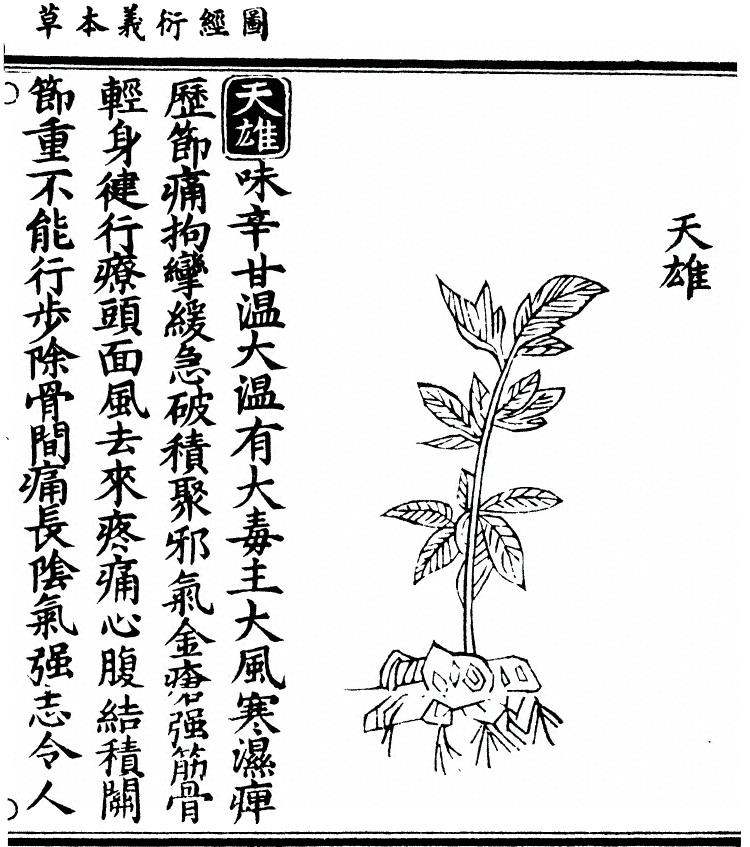 圖經衍義本草
天雄
天雄味辛甘温大温有大毒主大風寒濕痺
歷節痛拘攣緩急破積聚邪氣金瘡强筋骨
輕身徤行療頭面風去來疼痛心腹結積關
節重不能行步除骨間痛長隂氣强志令人